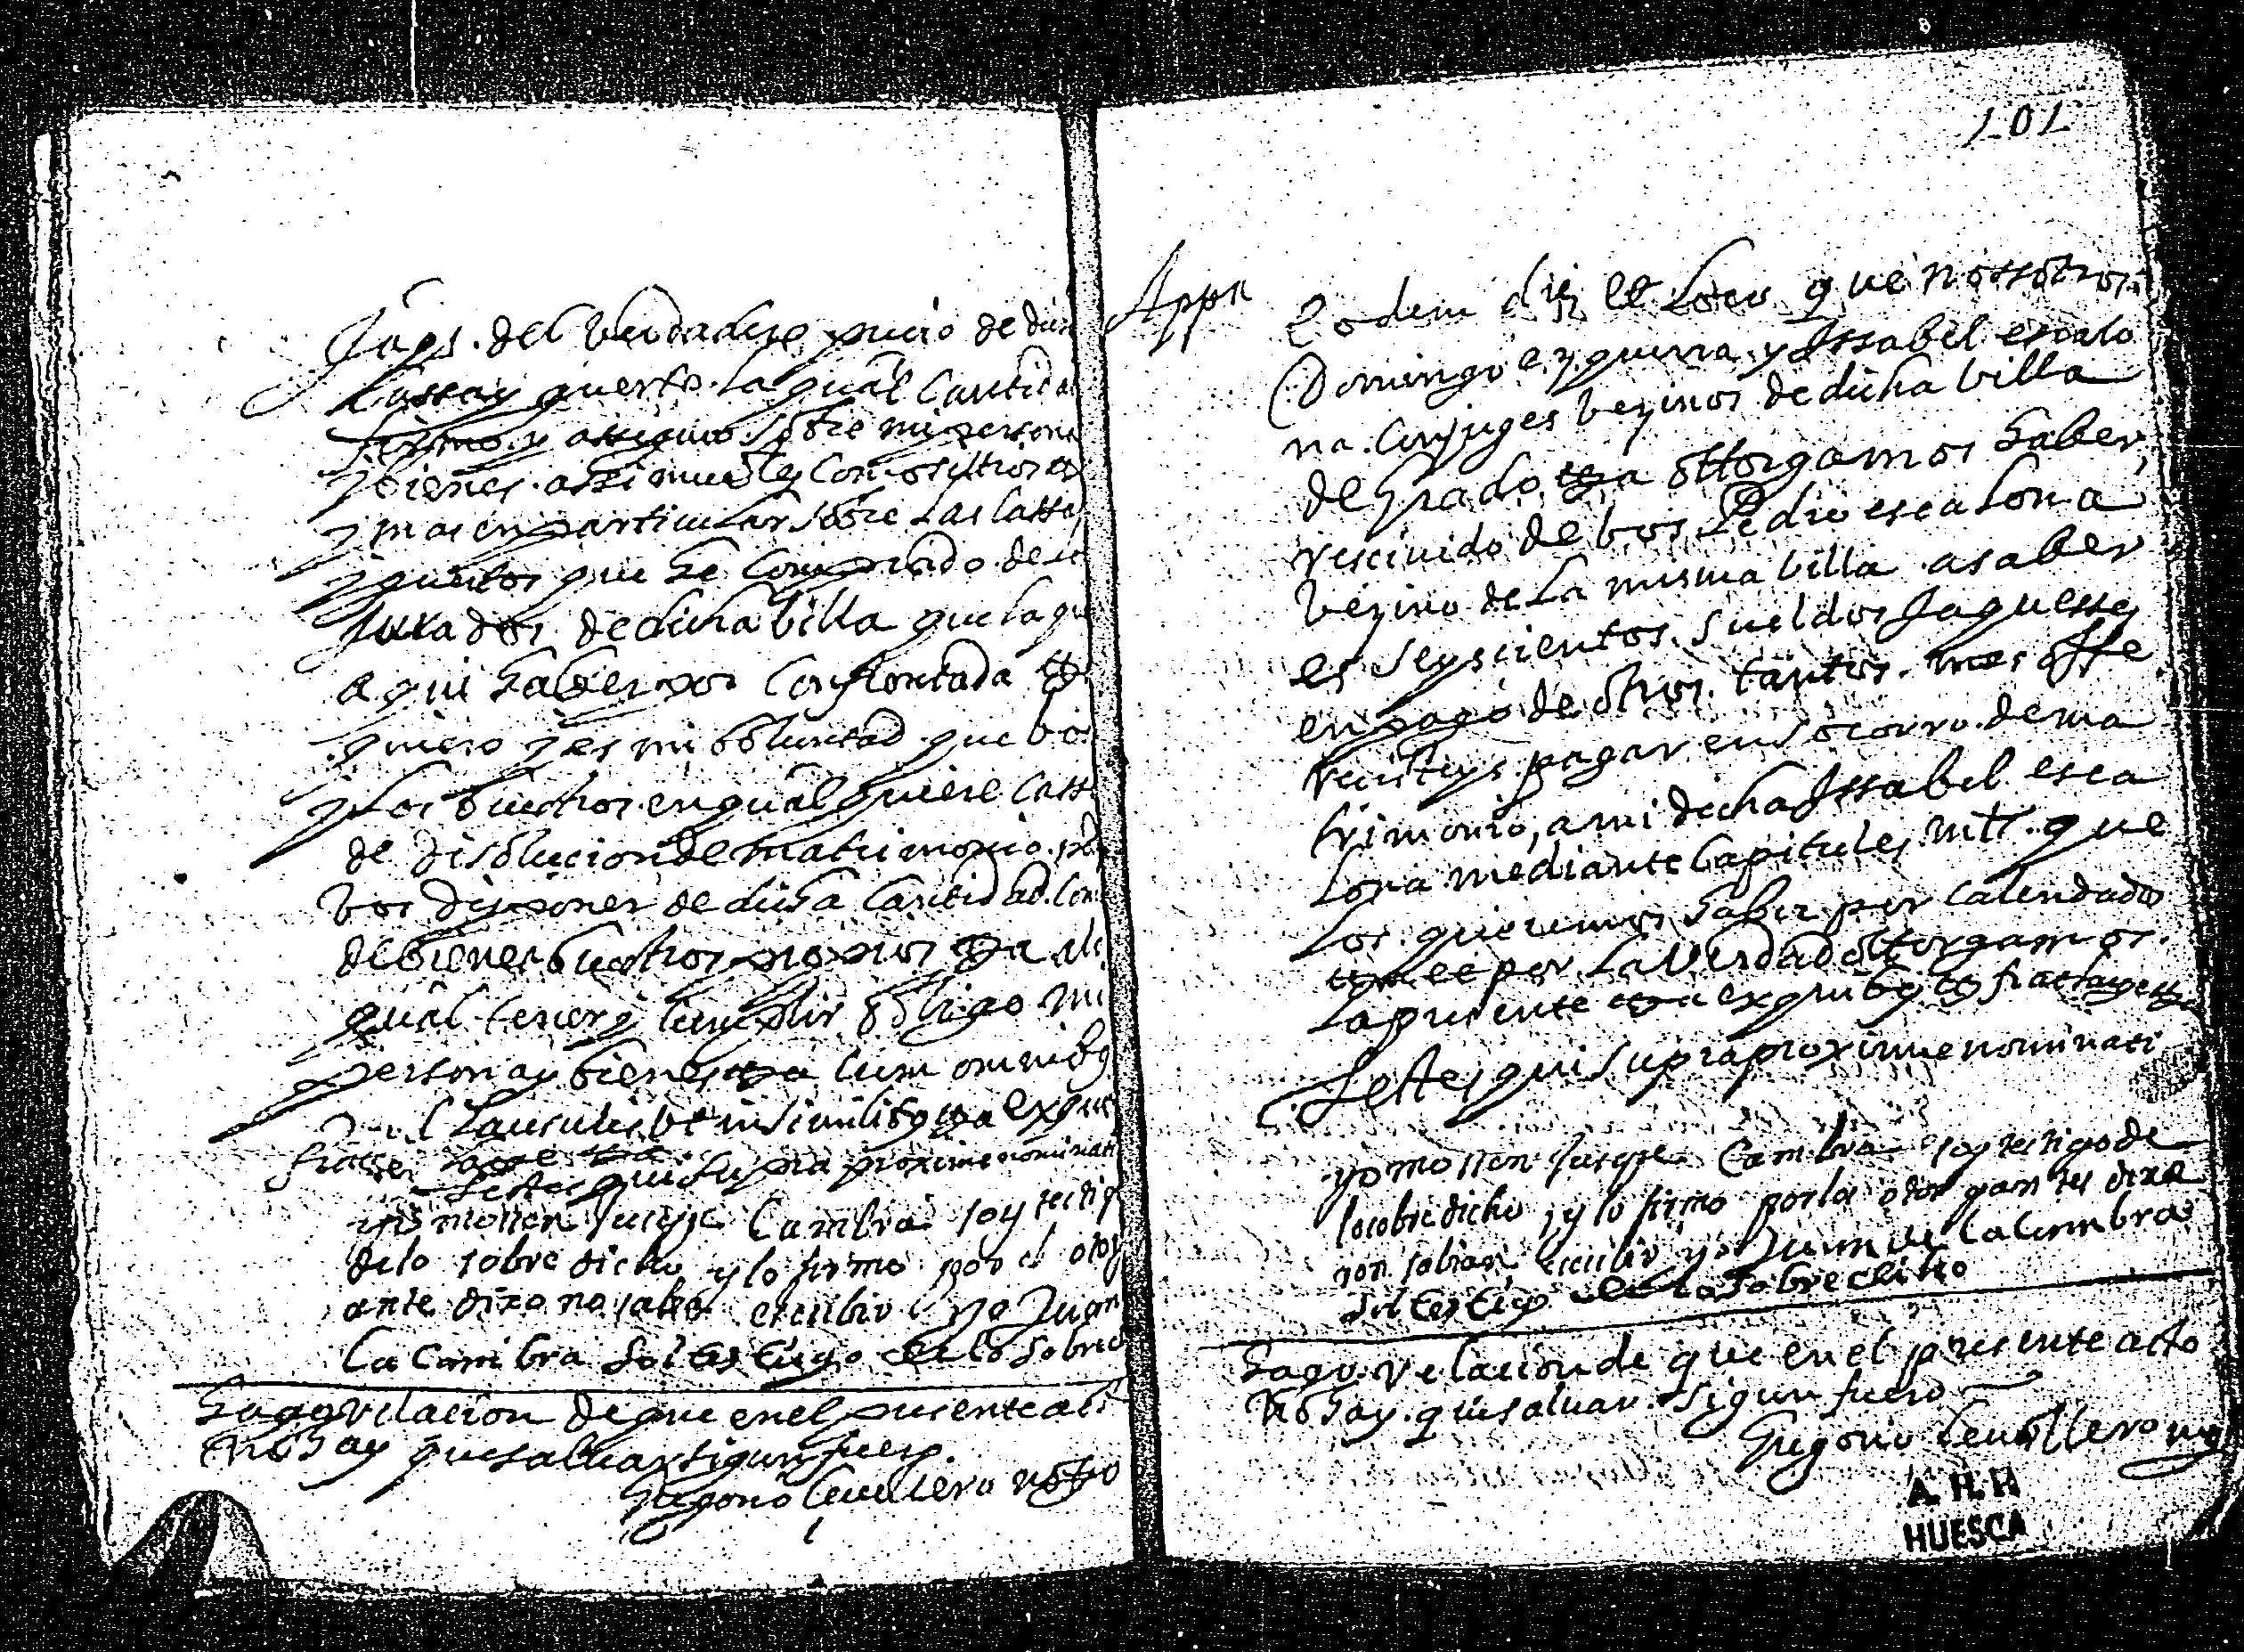 Jaqs. del berdadero precio de dich
cassa y guerto. la qual cantida
firmo y assiguro sobre mi persona
y bienes. assi muebles como sittios
y mas en particular sobre las casse
y guertos que he comprado de lo
Jurados de dicha billa que la qu
aqui haber por confrontada
quiero y es mi boluntad que bos
y los buestros. en qual quiere casse
de disolucion de matrimonio
bos disponer de dicha cantidad. com
de bienes buestros propios
qual tener y cumplir obligo mi
persona y bienes cum omnibus
clausulis ut in similibus ex qui
fiat
Testes qui supra proxime nominati
yo mossen Jusepe Cambra soy testigo
de lo sobre dicho y lo firmo por el otorg
ante dixo no saber escribir yo Juan
La Cambra soi testigo de lo sobred
Hago relacion de que en el presente act
no hay que salvar sigun fuero.
Gregorio Cavallero notro
101
Appa
Eodem die et Loco que nossotros
Domingo ezquerra y Issabel escalo
na. Conjuges bezinos de dicha billa
de grado ottorgamos haber
rescivido de bos Pedro escalona
bezino de la misma billa. a saber
es seyscientos sueldos Jaquesses
en pago de otros. tantos.
pagar en socorro. de ma
trimonio, a mi dicha Issabel esca
lona mediante Capitules mtr. que
los. queremos haber por calendados
et por la verdad ottorgamos.
la presente ex quibus fiat
Testes qui supra proxime nominati
yo mossen Jusepe Cambra soy testigo de
lo sobre dicho y lo firmo por los otorgantes dixe
ron sabian escribir yo Juan de la Cambra
soi testigo de lo sobre dicho
Hago. relacion de que en el presente acto
no hay. que salvar. sigun fuero
Gregorio Cavallero
A. H. P.
HUESCA